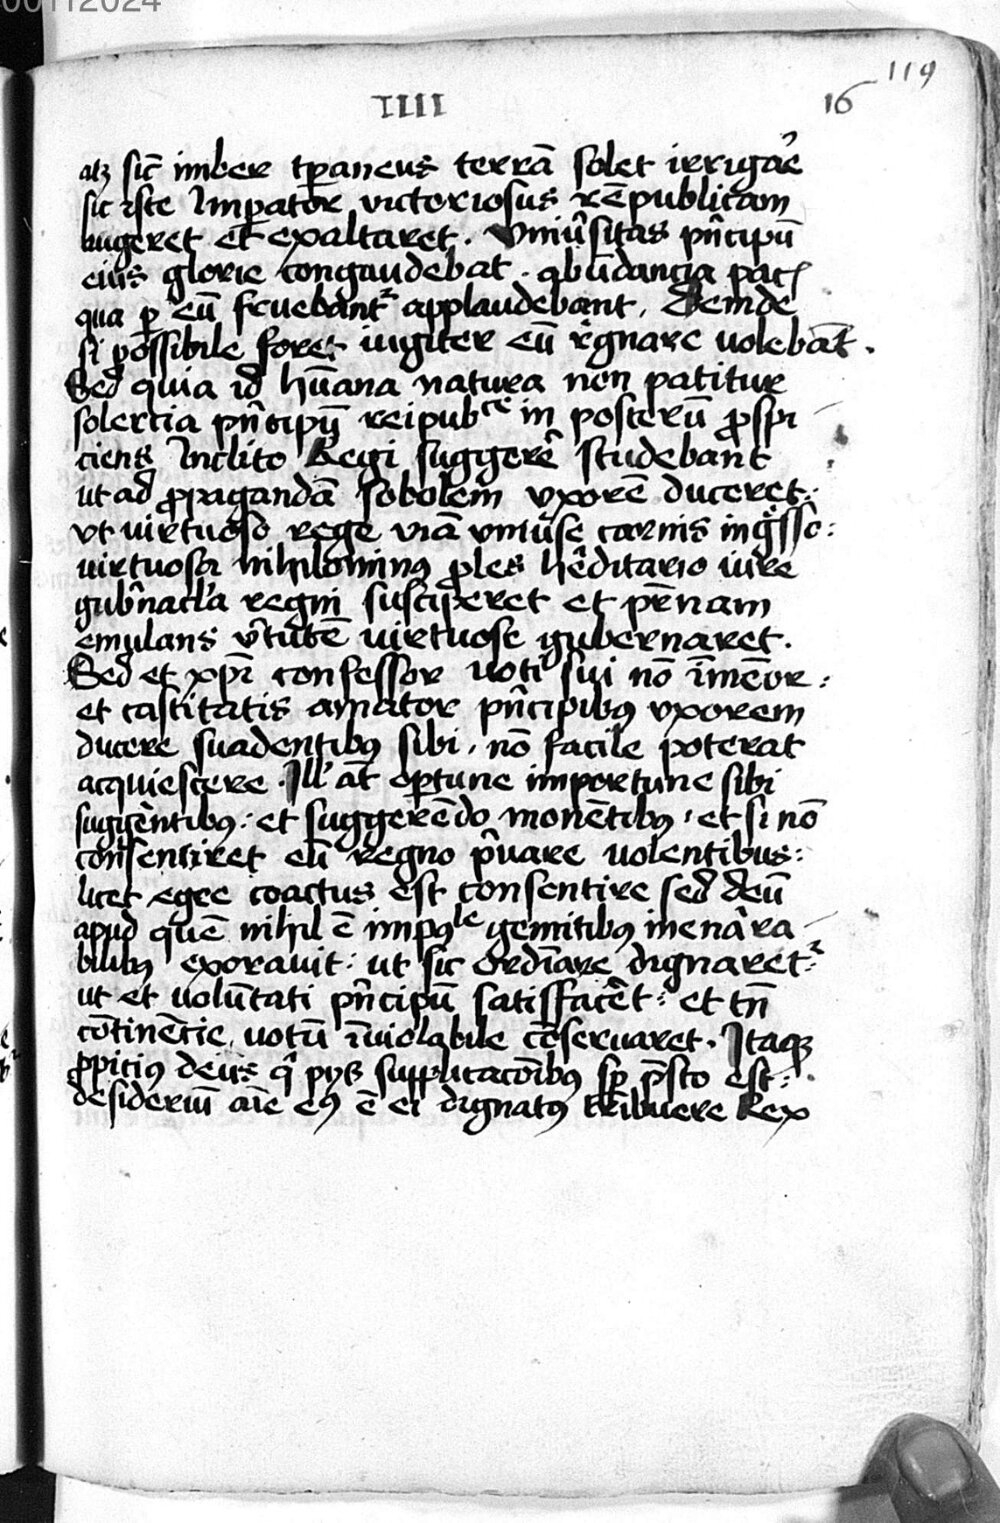 00112024
119
IIII 16
atqꝫ sic̄ imber tꝑaneus terrā solet irrigar̄e
sic iste Imꝑator victoriosus rēpublicam
augeret et exaltaret. Vniūsitas pn̄cipū
eius glorie congaudebat. abūdancia pacꝭ
qua ꝑ eū fruebant᷑ applaudebant, Deinde
si possibile foret iugiter eū regnare uolebāt.
Sed quia id hūana natura non patitur
solercia pn̄cipū reipubce in posterū ꝓspi
ciens Inclito Regi suggerē studebant
ut ad ꝓpagandā sobolem vxorē duceret:
vt uirtuoso rege viā vniūse carnis ingsso:
uirtuosa nihilominꝰ ꝓles hēditario iure
gubn̄acl̄a regni susciperet et pr̄nam
emulans v̄tutē uirtuose gubernaret.
Sed et xp̄i confessor uoti sui nō īmēor:
et castitatis amator pn̄cipibꝰ vxorem
ducere suadentibꝰ sibi, nō facile poterat
acquiescere. Ill' āt oꝑtune importune sibi
suggen̄tibꝰ: et suggerēdo monētibꝰ: et si nō
consentiret eū regno pͥuare uolentibus:
licet egre coactus est consentire sed deū
apud quē nihil ē impole gemitibꝰ inenāra
bilibꝰ exorauit: ut sic ordīare dignaret᷑
ut et uolūtati pn̄cipū satisfacēt: et tn̄
cōtinētie uotū īuiolabile cōseruaret. Itaqꝫ
ꝓpitiꝰ deus qͥ pijs supplicacōibꝰ sꝑ pn̄sto est:
desideriū aīe eꝰ ē ei dignatꝰ tribuere Rex